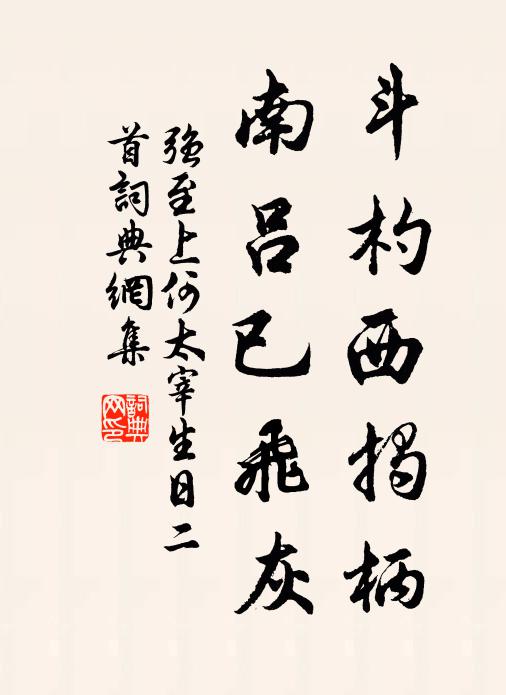 斗杓西揭柄
南吕已飛灰
強至上何太宰生日二
首詞典網集
詞典
网印